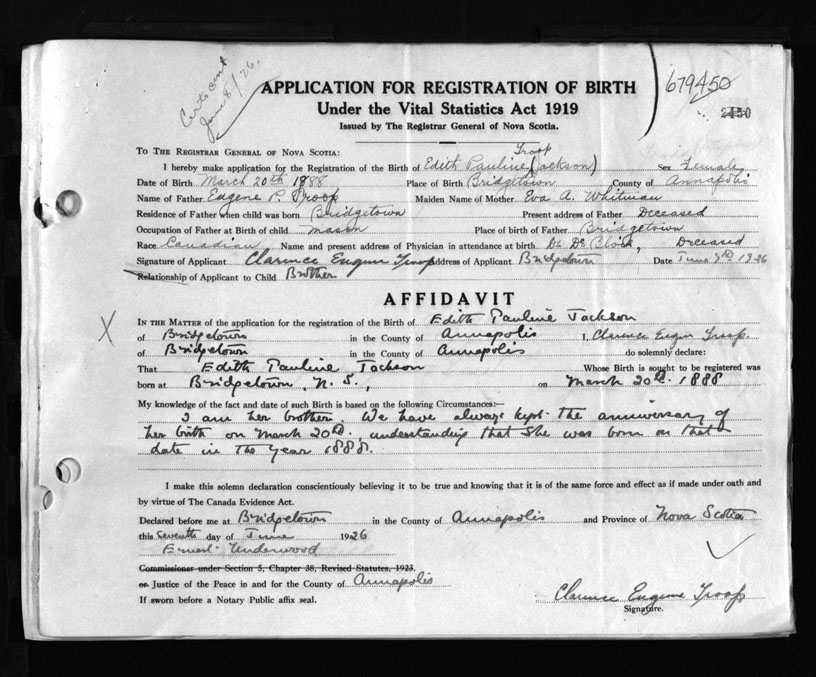 Certs sent
June 8/26.
679450
2450
APPLICATION FOR REGISTRATION OF BIRTH
Under the Vital Statistics Act 1919
Issued by The Registrar General of Nova Scotia.
TO THE REGISTRAR GENERAL OF NOVA SCOTIA:
Troop
I hereby make application for the Registration of the Birth of Edith Pauline (Jackson) Sex Female
Date of Birth March 20th 1888 Place of Birth Bridgetown County of Annapolis
Name of Father Eugene P. Troop Maiden Name of Mother Eva A. Whitman
Residence of Father when child was born Bridgetown Present address of Father Deceased
Occupation of Father at Birth of child mason Place of birth of Father Bridgetown
Race Canadian Name and present address of Physician in attendance at birth Dr De Block, Deceased
Signature of Applicant Clarence Eugene Troop Address of Applicant Bridgetown Date June 7th 1926
Relationship of Applicant to Child Brother
AFFIDAVIT
IN THE MATTER of the application for the registration of the Birth of Edith Pauline Jackson
of Bridgetown in the County of Annapolis I, Clarence Eugene Troop.
of Bridgetown in the County of Annapolis do solemnly declare:
That Edith Pauline Jackson Whose Birth is sought to be registered was
born at Bridgetown, N. S., on March 20th. 1888
My knowledge of the fact and date of such Birth is based on the following Circumstances:—
I am her brother. We have always kept the anniversary of
her birth on March 20th., understanding that she was born on that
date in the year 1888.
I make this solemn declaration conscientiously believing it to be true and knowing that it is of the same force and effect as if made under oath and
by virtue of The Canada Evidence Act.
Declared before me at Bridgetown in the County of Annapolis and Province of Nova Scotia
this Seventh day of June 1926
Ernest Underwood
Commissioner under Section 5, Chapter 38, Revised Statutes, 1923.
or Justice of the Peace in and for the County of Annapolis
If sworn before a Notary Public affix seal.
Clarence Eugene Troop
Signature.